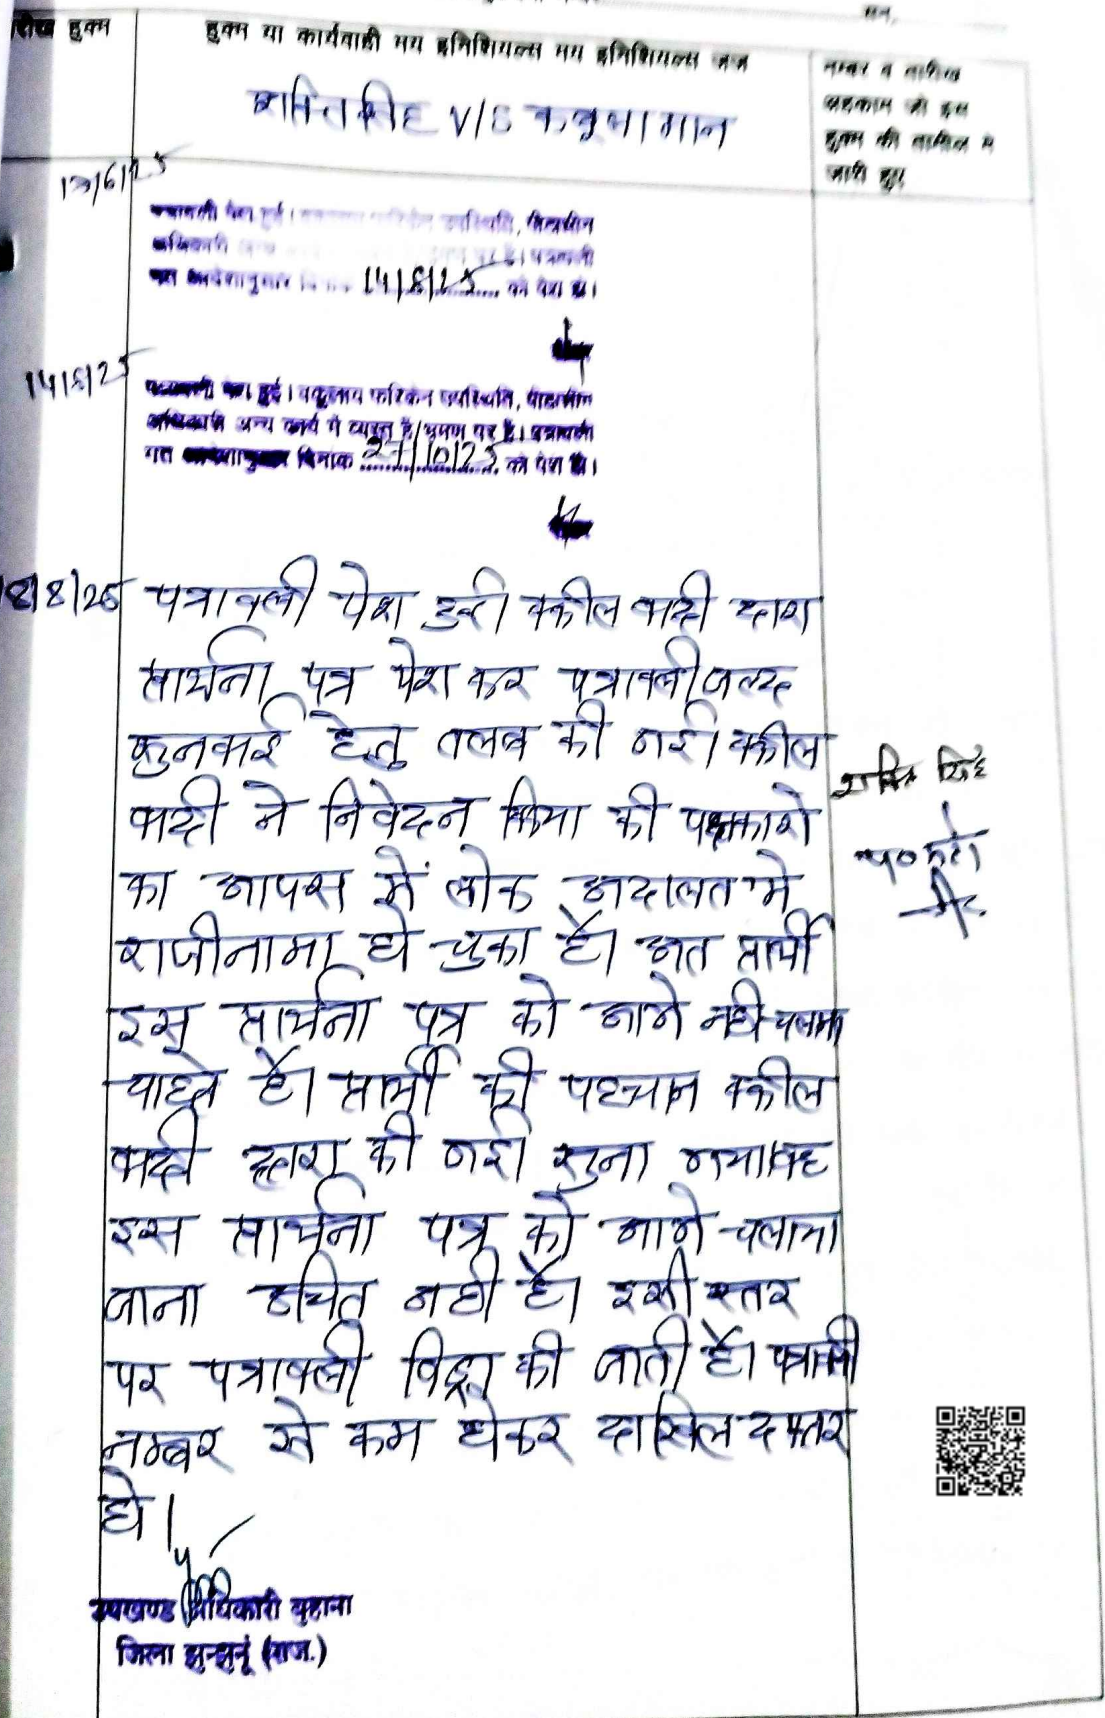 सन्
तारीख हुक्म
हुक्म या कार्यवाही मय इनिशियल्स मय इनिशियल्स जज
नम्बर व तारीख
अहकाम जो इस
हुक्म की तामिल में
जारी हुए
V/S
पत्रावली पेश हुई। उपस्थिति,
अधिकारी अन्य पर है। पत्रावली
गत आदेशानुसार दिनांक 14/8/25 को पेश हो।
14/8/25
पत्रावली पेश हुई। वकूलाय फरिकेन उपस्थिति, पीठासीन
अधिकारी अन्य कार्य में व्यस्त है/भ्रमण पर है। पत्रावली
गत आदेशानुसार दिनांक 27/10/25 को पेश हो।
8/8/25 पत्रावली पेश हुई। वकील वादी द्वारा
प्रार्थना पत्र पेश कर पत्रावली जल्द
सुनवाई हेतु तलब की गई। वकील
वादी ने निवेदन किया की पक्षकारो
का आपस में लोक अदालत मे
राजीनामा हो चुका है। अत प्रार्थी
इस प्रार्थना पत्र को आगे नही चलाना
चाहते है। प्रार्थी की पहचान वकील
वादी द्वारा की गई। सुना गया।
इस प्रार्थना पत्र को आगे चलाया
जाना उचित नही है। इसी स्तर
पर पत्रावली विड्रा की जाती है। पत्रावली
नम्बर से कम होकर दाखिल दफ्तर
हो।
उपखण्ड अधिकारी बुहाना
जिला झुन्झुनूं (राज.)